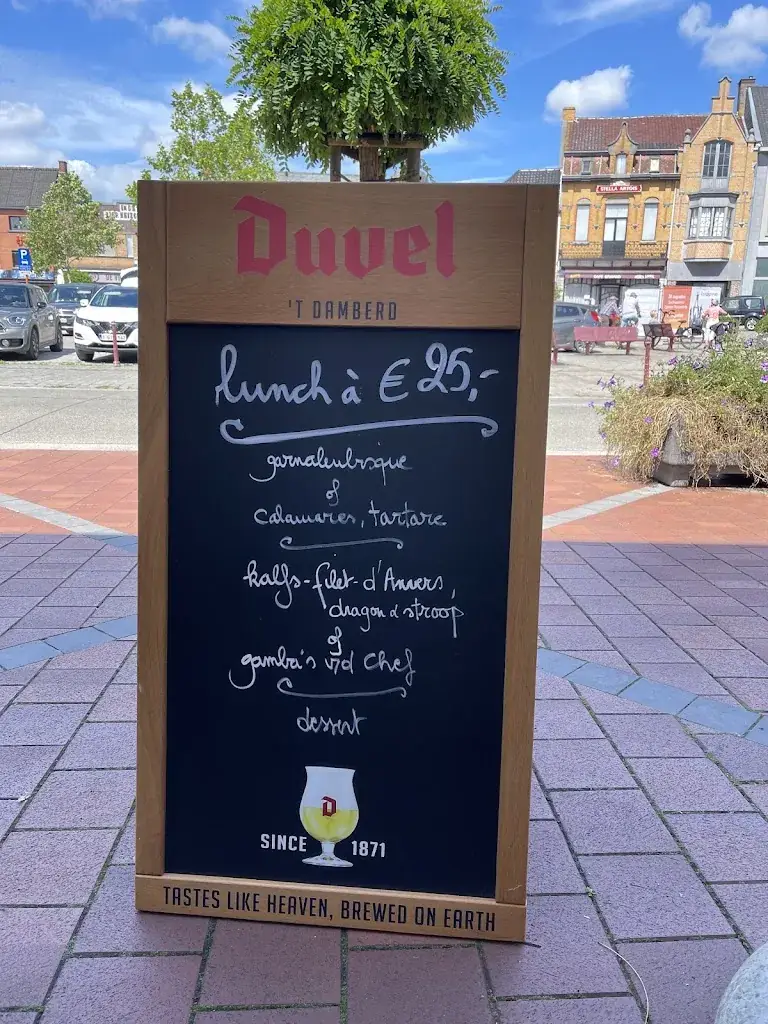 Duvel
'T DAMBERD
lunch à € 25,-
garnaalbisque
of
Calamares, tartare
kalfs-filet-d'Anvers,
dragon & stroop
of
gamba's v/d Chef
dessert
D
SINCE 1871
TASTES LIKE HEAVEN, BREWED ON EARTH
STELLA ARTOIS
P